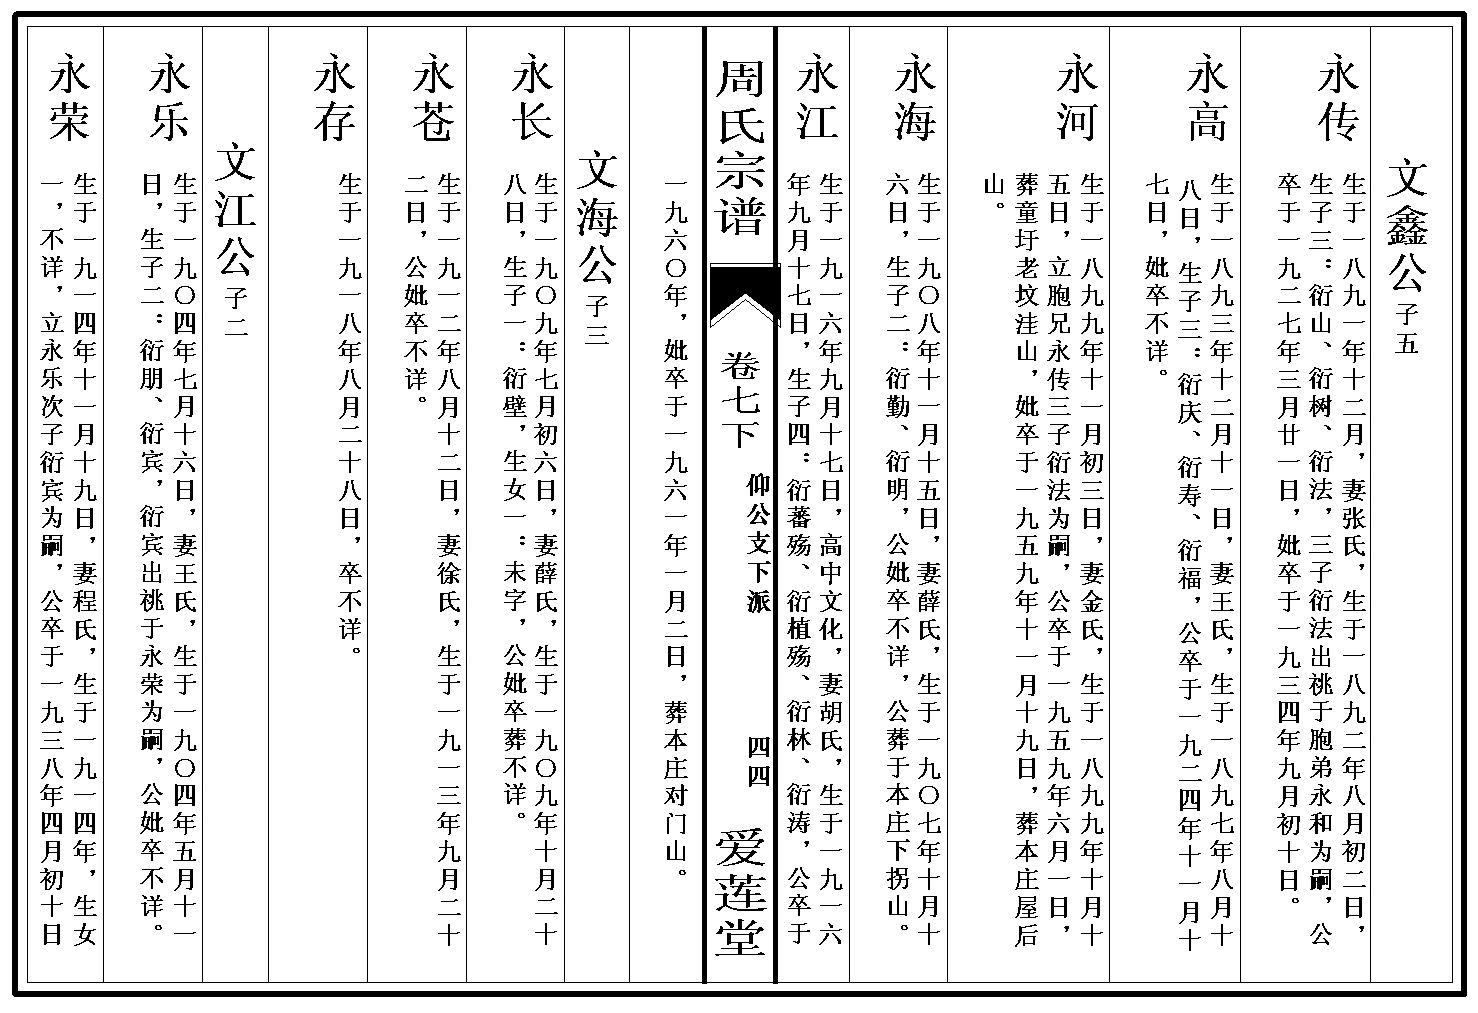 文鑫公 子五
永传
生于一八九一年十二月，妻张氏，生于一八九二年八月初二日，
生子三：衍山、衍树、衍法，三子衍法出祧于胞弟永和为嗣，公
卒于一九二七年三月廿一日，妣卒于一九三四年九月初十日。
永高
生于一八九三年十二月十一日，妻王氏，生于一八九七年八月十
八日，生子三：衍庆、衍寿、衍福，公卒于一九二四年十一月十
七日，妣卒不详。
永河
生于一八九九年十一月初三日，妻金氏，生于一八九九年十月十
五日，立胞兄永传三子衍法为嗣，公卒于一九五九年六月一日，
葬童圩老坟洼山，妣卒于一九五九年十一月十九日，葬本庄屋后
山。
永海
生于一九〇八年十一月十五日，妻薛氏，生于一九〇七年十月十
六日，生子二：衍勤、衍明，公妣卒不详，公葬于本庄下拐山。
永江
生于一九一六年九月十七日，高中文化，妻胡氏，生于一九一六
年九月十七日，生子四：衍蕃殇、衍植殇、衍林、衍涛，公卒于
周氏宗谱
卷七下
仰公支下派
四四
爱莲堂
一九六〇年，妣卒于一九六一年一月二日，葬本庄对门山。
文海公 子三
永长
生于一九〇九年七月初六日，妻薛氏，生于一九〇九年十月二十
八日，生子一：衍壁，生女一：未字，公妣卒葬不详。
永苍
生于一九一二年八月十二日，妻徐氏，生于一九一三年九月二十
二日，公妣卒不详。
永存
生于一九一八年八月二十八日，卒不详。
文江公 子二
永乐
生于一九〇四年七月十六日，妻王氏，生于一九〇四年五月十一
日，生子二：衍朋、衍宾，衍宾出祧于永荣为嗣，公妣卒不详。
永荣
生于一九一四年十一月十九日，妻程氏，生于一九一四年，生女
一，不详，立永乐次子衍宾为嗣，公卒于一九三八年四月初十日